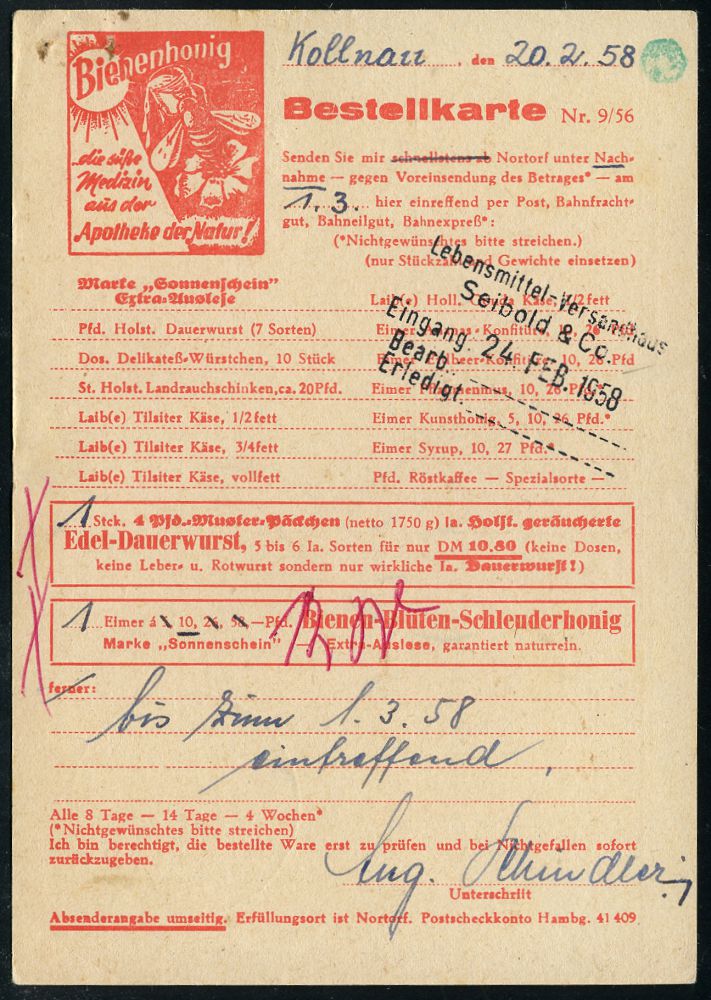 Bienenhonig
„die süße
Medizin
aus der
Apotheke der Natur!
Kollnau, den 20.2.58
Bestellkarte Nr. 9/56
Senden Sie mir schnellstens ab Nortorf unter Nach-
nahme — gegen Voreinsendung des Betrages* — am
1.3. hier eintreffend per Post, Bahnfracht-
gut, Bahneilgut, Bahnexpreß*:
(*Nichtgewünschtes bitte streichen.)
(nur Stückzahl und Gewichte einsetzen)
Lebensmittel-Versandhaus
Seibold & Co.
Eingang: 24. FEB. 1958
Bearb.
Erledigt
Marke „Sonnenschein"
Extra-Auslese
Pfd. Holst. Dauerwurst (7 Sorten)
Dos. Delikateß-Würstchen, 10 Stück
St. Holst. Landrauchschinken, ca. 20 Pfd.
Laib(e) Tilsiter Käse, 1/2 fett
Laib(e) Tilsiter Käse, 3/4 fett
Laib(e) Tilsiter Käse, vollfett
Laib(e) Holl. Gouda Käse, 1/2 fett
Eimer Konfitüre, 26 Pfd
Eimer Erdbeer-Konfitüre, 10, 26 Pfd
Eimer Pflaumenmus, 10, 26 Pfd
Eimer Kunsthonig, 5, 10, 26 Pfd.*
Eimer Syrup, 10, 27 Pfd.*
Pfd. Röstkaffee — Spezialsorte —
1 Stck. 4 Pfd.-Muster-Päckchen (netto 1750 g) Ia. Holst. geräucherte
Edel-Dauerwurst, 5 bis 6 Ia. Sorten für nur DM 10.80 (keine Dosen,
keine Leber- u. Rotwurst sondern nur wirkliche Ia. Dauerwurst!)
1 Eimer á 10, 26, 58,—Pfd. Bienen-Blüten-Schleuderhonig
Marke „Sonnenschein" — Extra-Auslese, garantiert naturrein.
ferner:
bis zum 1.3.58
eintreffend.
Alle 8 Tage — 14 Tage — 4 Wochen*
(*Nichtgewünschtes bitte streichen)
Ich bin berechtigt, die bestellte Ware erst zu prüfen und bei Nichtgefallen sofort
zurückzugeben.
Aug. Schindler
Unterschrift
Absenderangabe umseitig. Erfüllungsort ist Nortorf. Postscheckkonto Hambg. 41 409